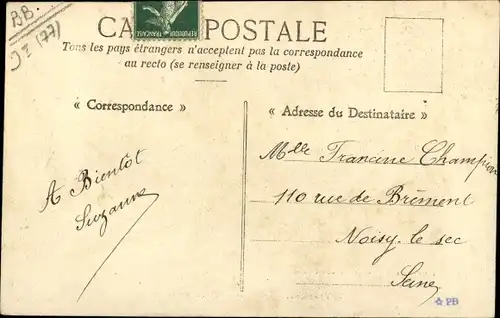 BB
CA POSTALE
Tous les pays étrangers n'acceptent pas la correspondance
au recto (se renseigner à la poste)
« Correspondance »
« Adresse du Destinataire »
A Bientôt
Suzanne
Mlle Francine Champion
110 rue de Brément
Noisy-le sec
Seine
☆ PB